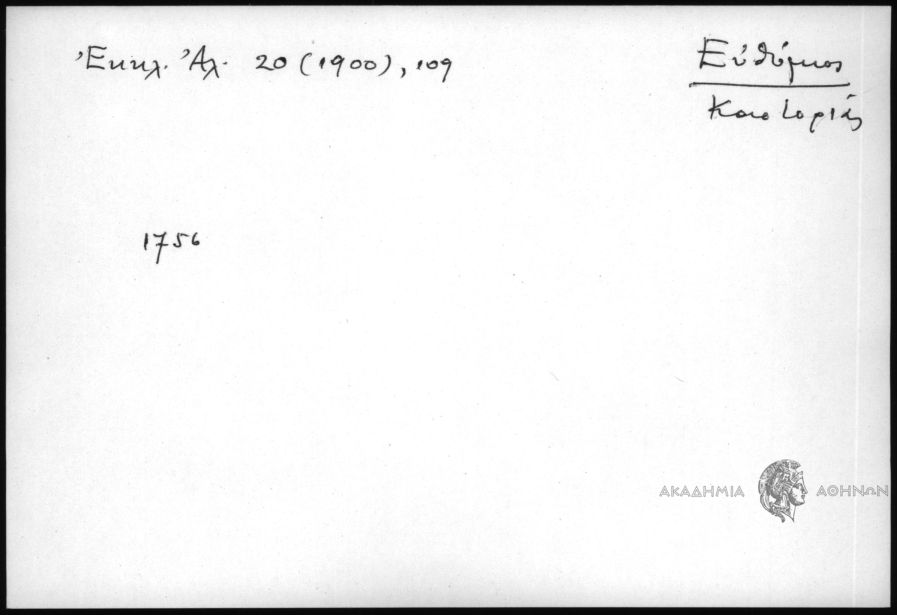 Ἐκκλ. Ἀλ. 20 (1900), 109
Εὐθύμιος
Καστορίας
1756
ΑΚΑΔΗΜΙΑ ΑΘΗΝΩΝ